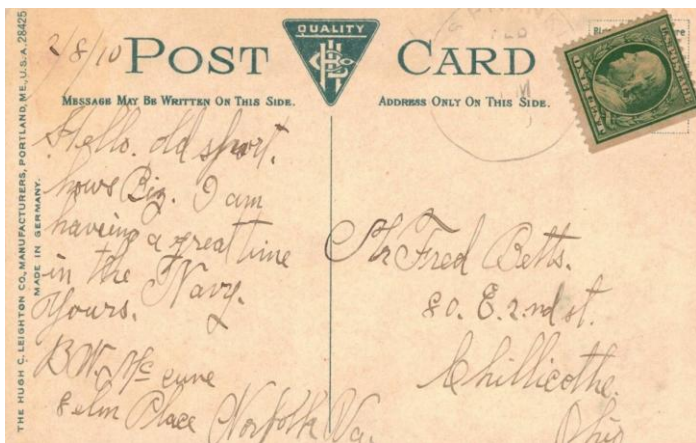 THE HUGH C. LEIGHTON CO., MANUFACTURERS, PORTLAND, ME., U.S.A. 28425
MADE IN GERMANY.
2/8/10
POST CARD
QUALITY
MESSAGE MAY BE WRITTEN ON THIS SIDE.
ADDRESS ONLY ON THIS SIDE.
Hello. old sport.
hows Biz. I am
having a great time
in the Navy.
Yours.
B.W. McCune
8 elm Place Norfolk Va.
Mr Fred Betts.
80. E. 2nd st.
Chillicothe.
Ohio
ONE CENT